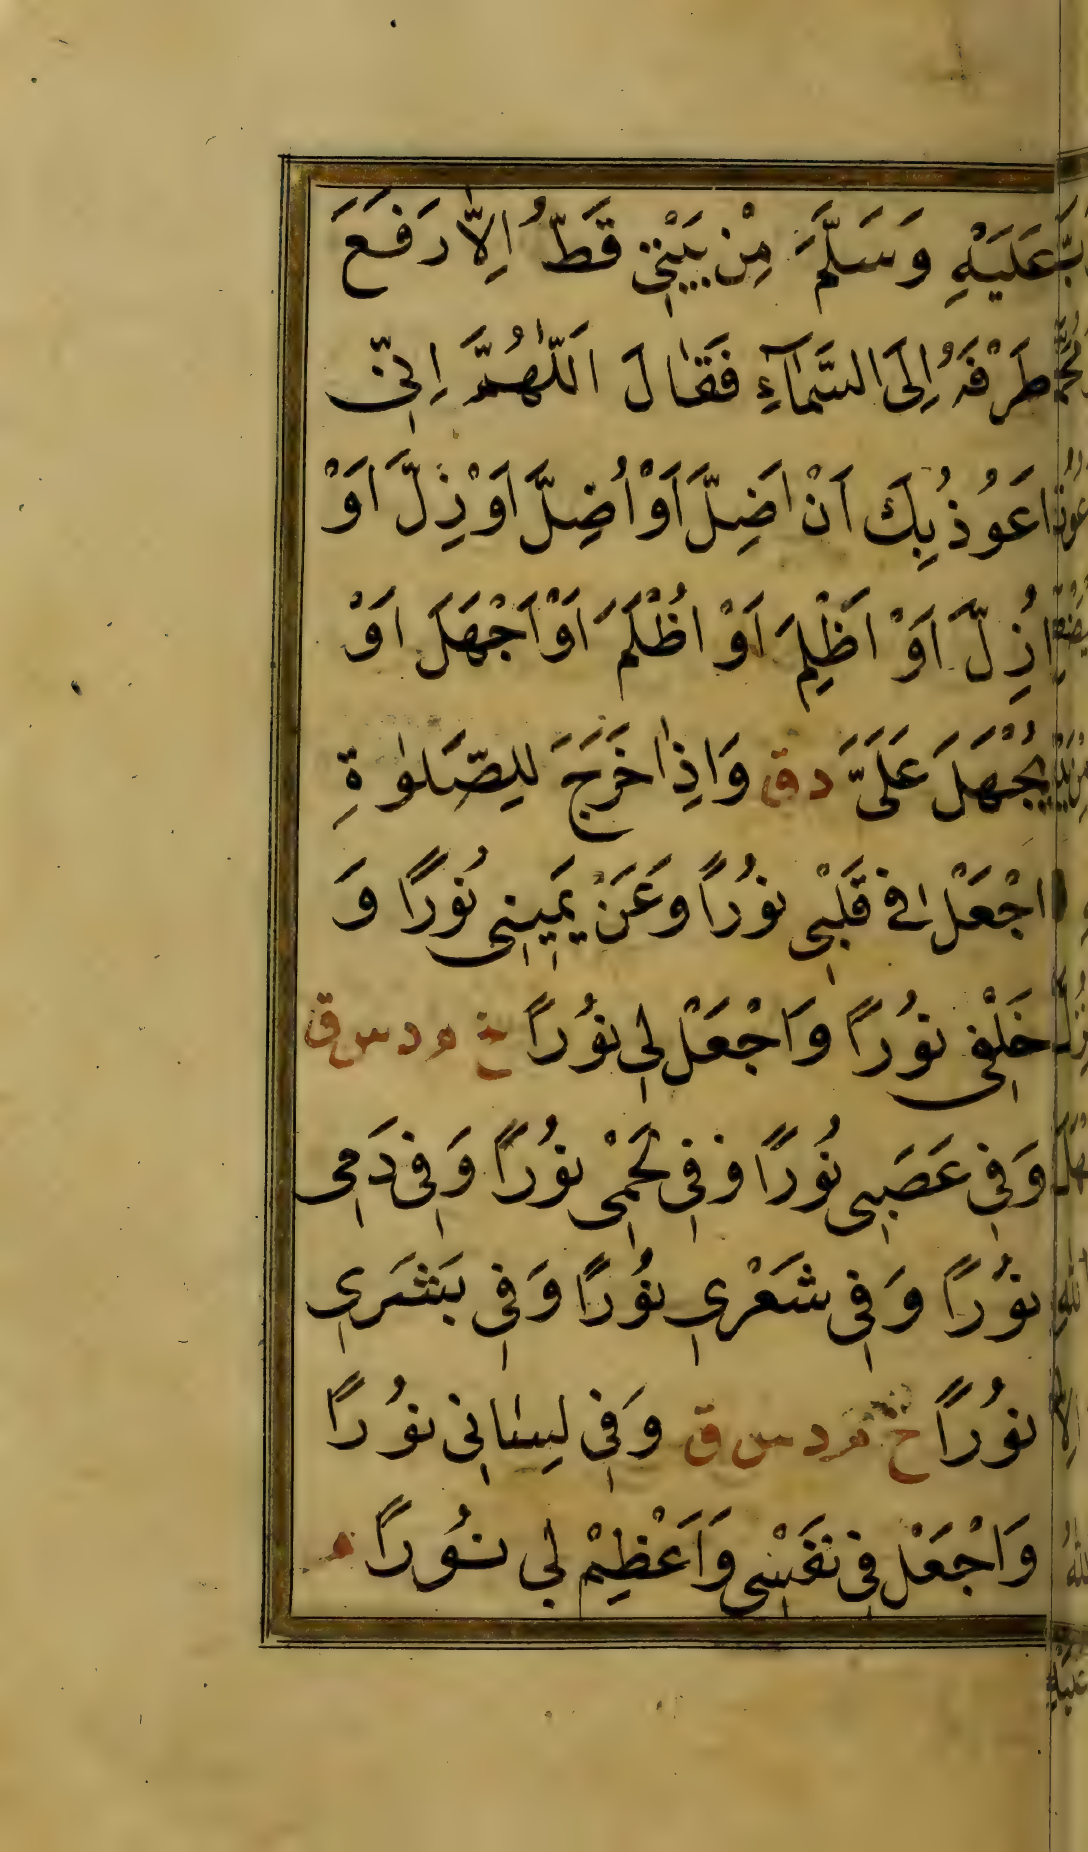 عَلَيْهِ وَسَلَّمَ مِنْ بَيْتِي قَطُّ اِلاّٰ رَفَعَ
طَرْفَهُ اِلَى السَّمَآءِ فَقٰالَ اَللّٰهُمَّ اِنّي
اَعُوذُ بِكَ اَنْ اَضِلَّ اَوْ اُضِلَّ اَوْ زِلَّ اَوْ
اُزِلَّ اَوْ اَظْلِمَ اَوْ اُظْلَمَ اَوْ اَجْهَلَ اَوْ
يُجْهَلَ عَلَىَّ د ق وَاِذٰا خَرَجَ لِلصَّلوٰةِ
اجْعَلْ في قَلْبي نُورًا وَعَنْ يَميني نُورًا وَ
خَلْفي نُورًا وَاجْعَلْ لي نُورًا خ م د س ق
وَفي عَصَبي نُورًا وَفي لَحْمي نُورًا وَفي دَمي
نُورًا وَفي شَعْري نُورًا وَفي بَشَري
نُورًا خ م د س ق وَفي لِسٰاني نُورًا
وَاجْعَلْ في نَفْسي وَاَعْظِمْ لي نُورًا م